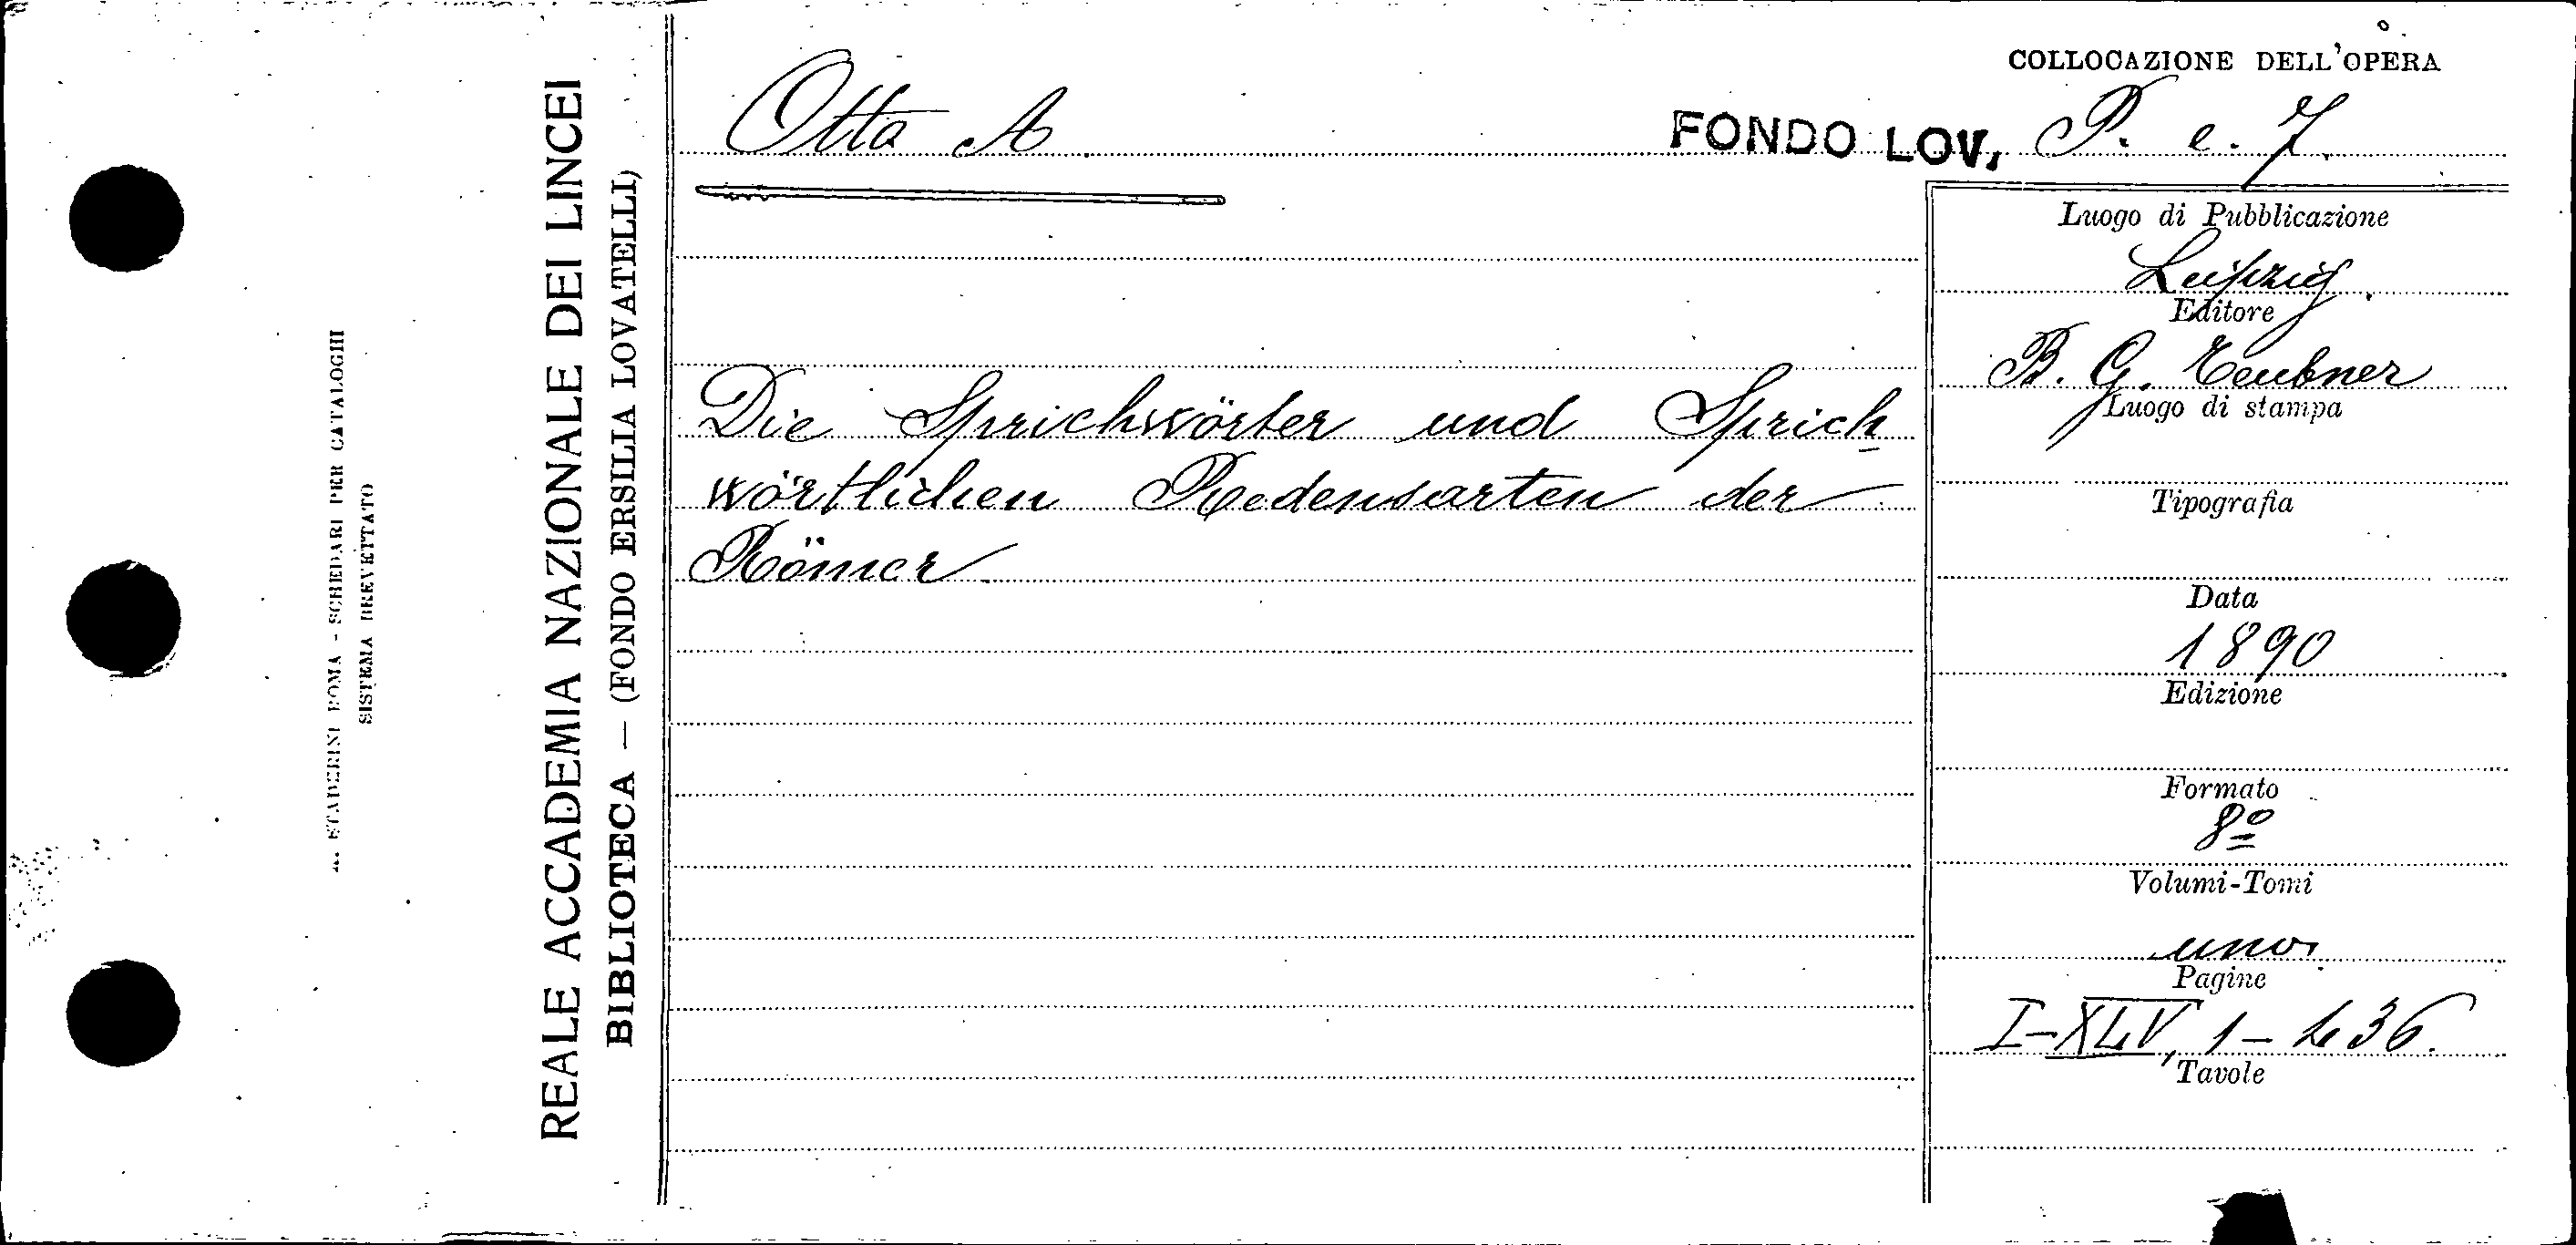 A. STADERINI ROMA - SCHEDARI PER CATALOGHI
SISTEMA BREVETTATO
REALE ACCADEMIA NAZIONALE DEI LINCEI
BIBLIOTECA — (FONDO ERSILIA LOVATELLI)
COLLOCAZIONE DELL'OPERA
Otta A
FONDO LOV, P. e. 7.
Die Sprichwörter und Sprich
wörtlichen Redensarten der
Römer
Luogo di Pubblicazione
Leipzig.
Editore
B. G. Teubner
Luogo di stampa
Tipografia
Data
1890
Edizione
Formato
8º
Volumi-Tomi
uno
Pagine
I-XLV, 1-436.
Tavole